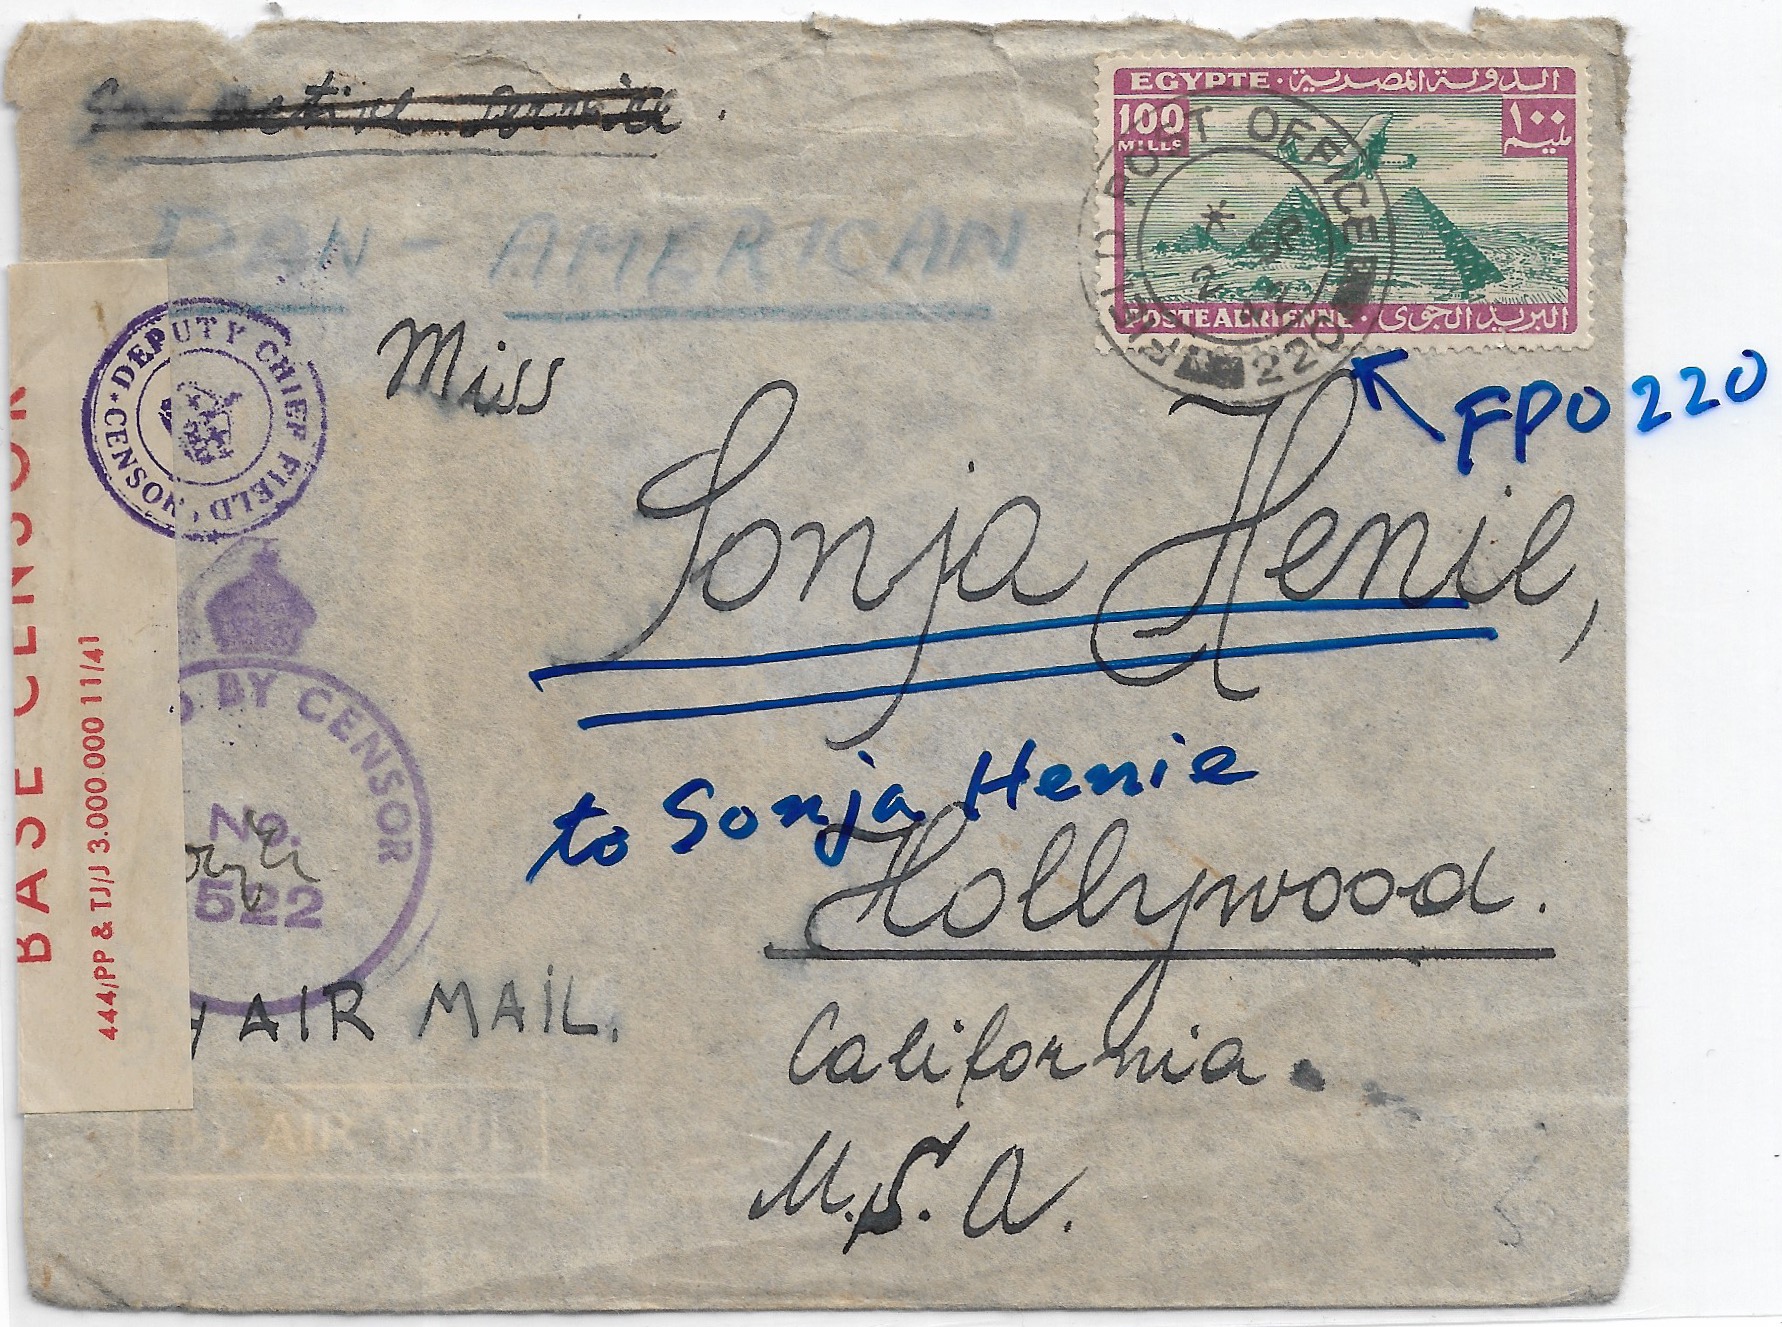 On Active Service.
EGYPTE · الدولة المصرية
100
MILLS
١٠٠
مليم
POSTE AERIENNE · البريد الجوى
FIELD POST OFFICE 220
*
SP
2
PAN-AMERICAN
DEPUTY CHIEF FIELD CENSOR
Miss
FPO 220
Sonja Henie,
to Sonja Henie
BASE CENSOR
444/PP & TJ/J 3.000.000 11/41
D BY CENSOR
No.
522
Hollywood.
y AIR MAIL.
California.
U.S.A.
BY AIR MAIL